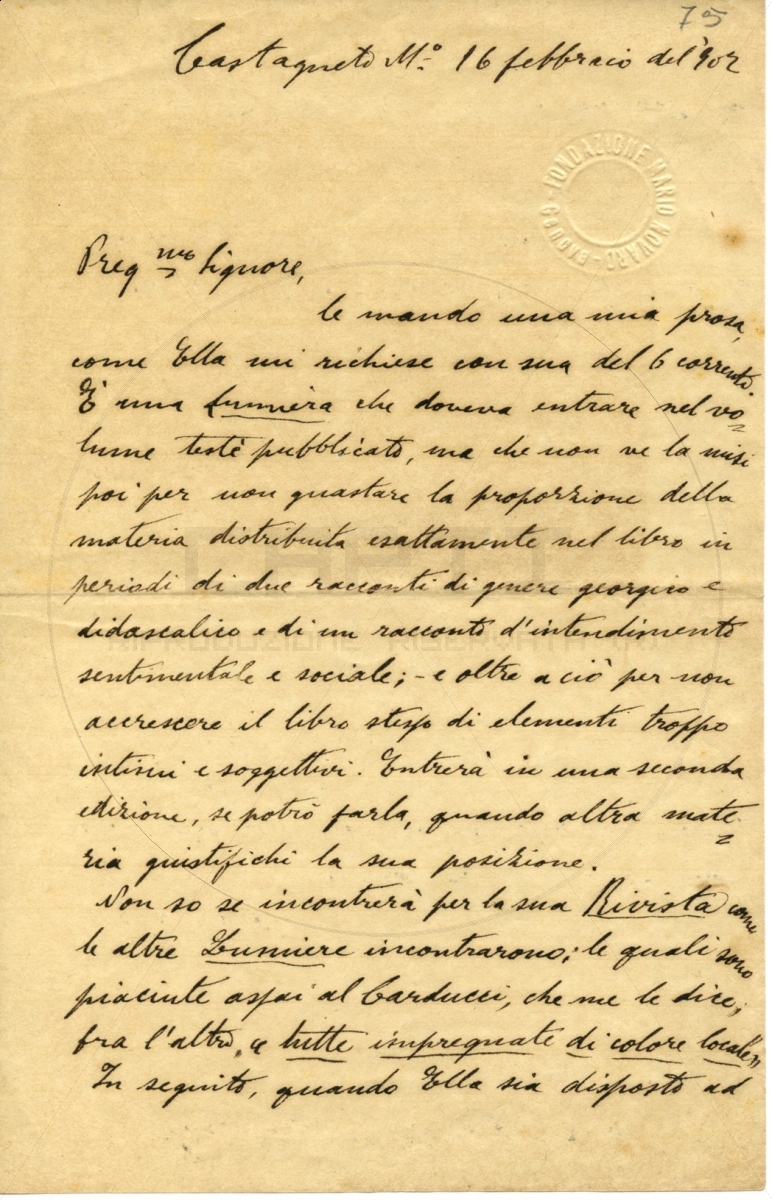 75
Castagneto M.º 16 febbraio del '902
FONDAZIONE MARIO NOVARO
Preg.mo Signore,
le mando una mia prosa,
come Ella mi richiese con sua del 6 corrente.
È una Lumièra che doveva entrare nel vo=
lume testè pubblicato, ma che non ve la misi
poi per non guastare la proporzione della
materia distribuita esattamente nel libro in
periodi di due racconti di genere georgico e
didascalico e di un racconto d'intendimento
sentimentale e sociale; - e oltre a ciò per non
accrescere il libro stesso di elementi troppo
intimi e soggettivi. Entrerà in una seconda
edizione, se potrò farla, quando altra mate=
ria giustifichi la sua posizione.
Non so se incontrerà per la sua Rivista come
le altre Lumiere incontrarono; le quali sono
piaciute assai al Carducci, che me le dice,
fra l'altro, « tutte impregnate di colore locale »
In seguito, quando Ella sia disposto ad